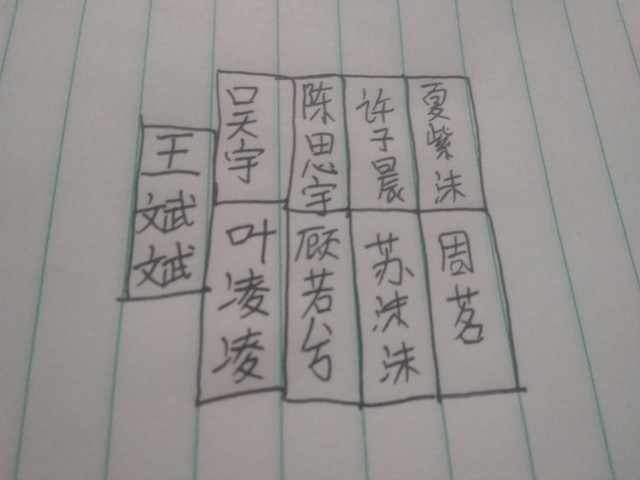 王斌斌
吴宇
陈思宇
许子晨
夏紫沫
叶凌凌
顾若兮
苏沫沫
周茗